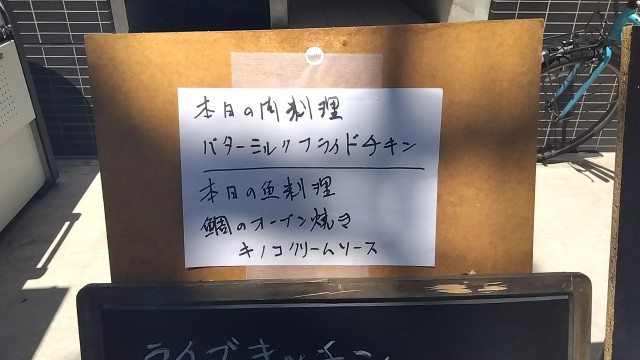 本日の肉料理
バターミルクフライドチキン
本日の魚料理
鯛のオーブン焼き
キノコクリームソース
ライブキッチン